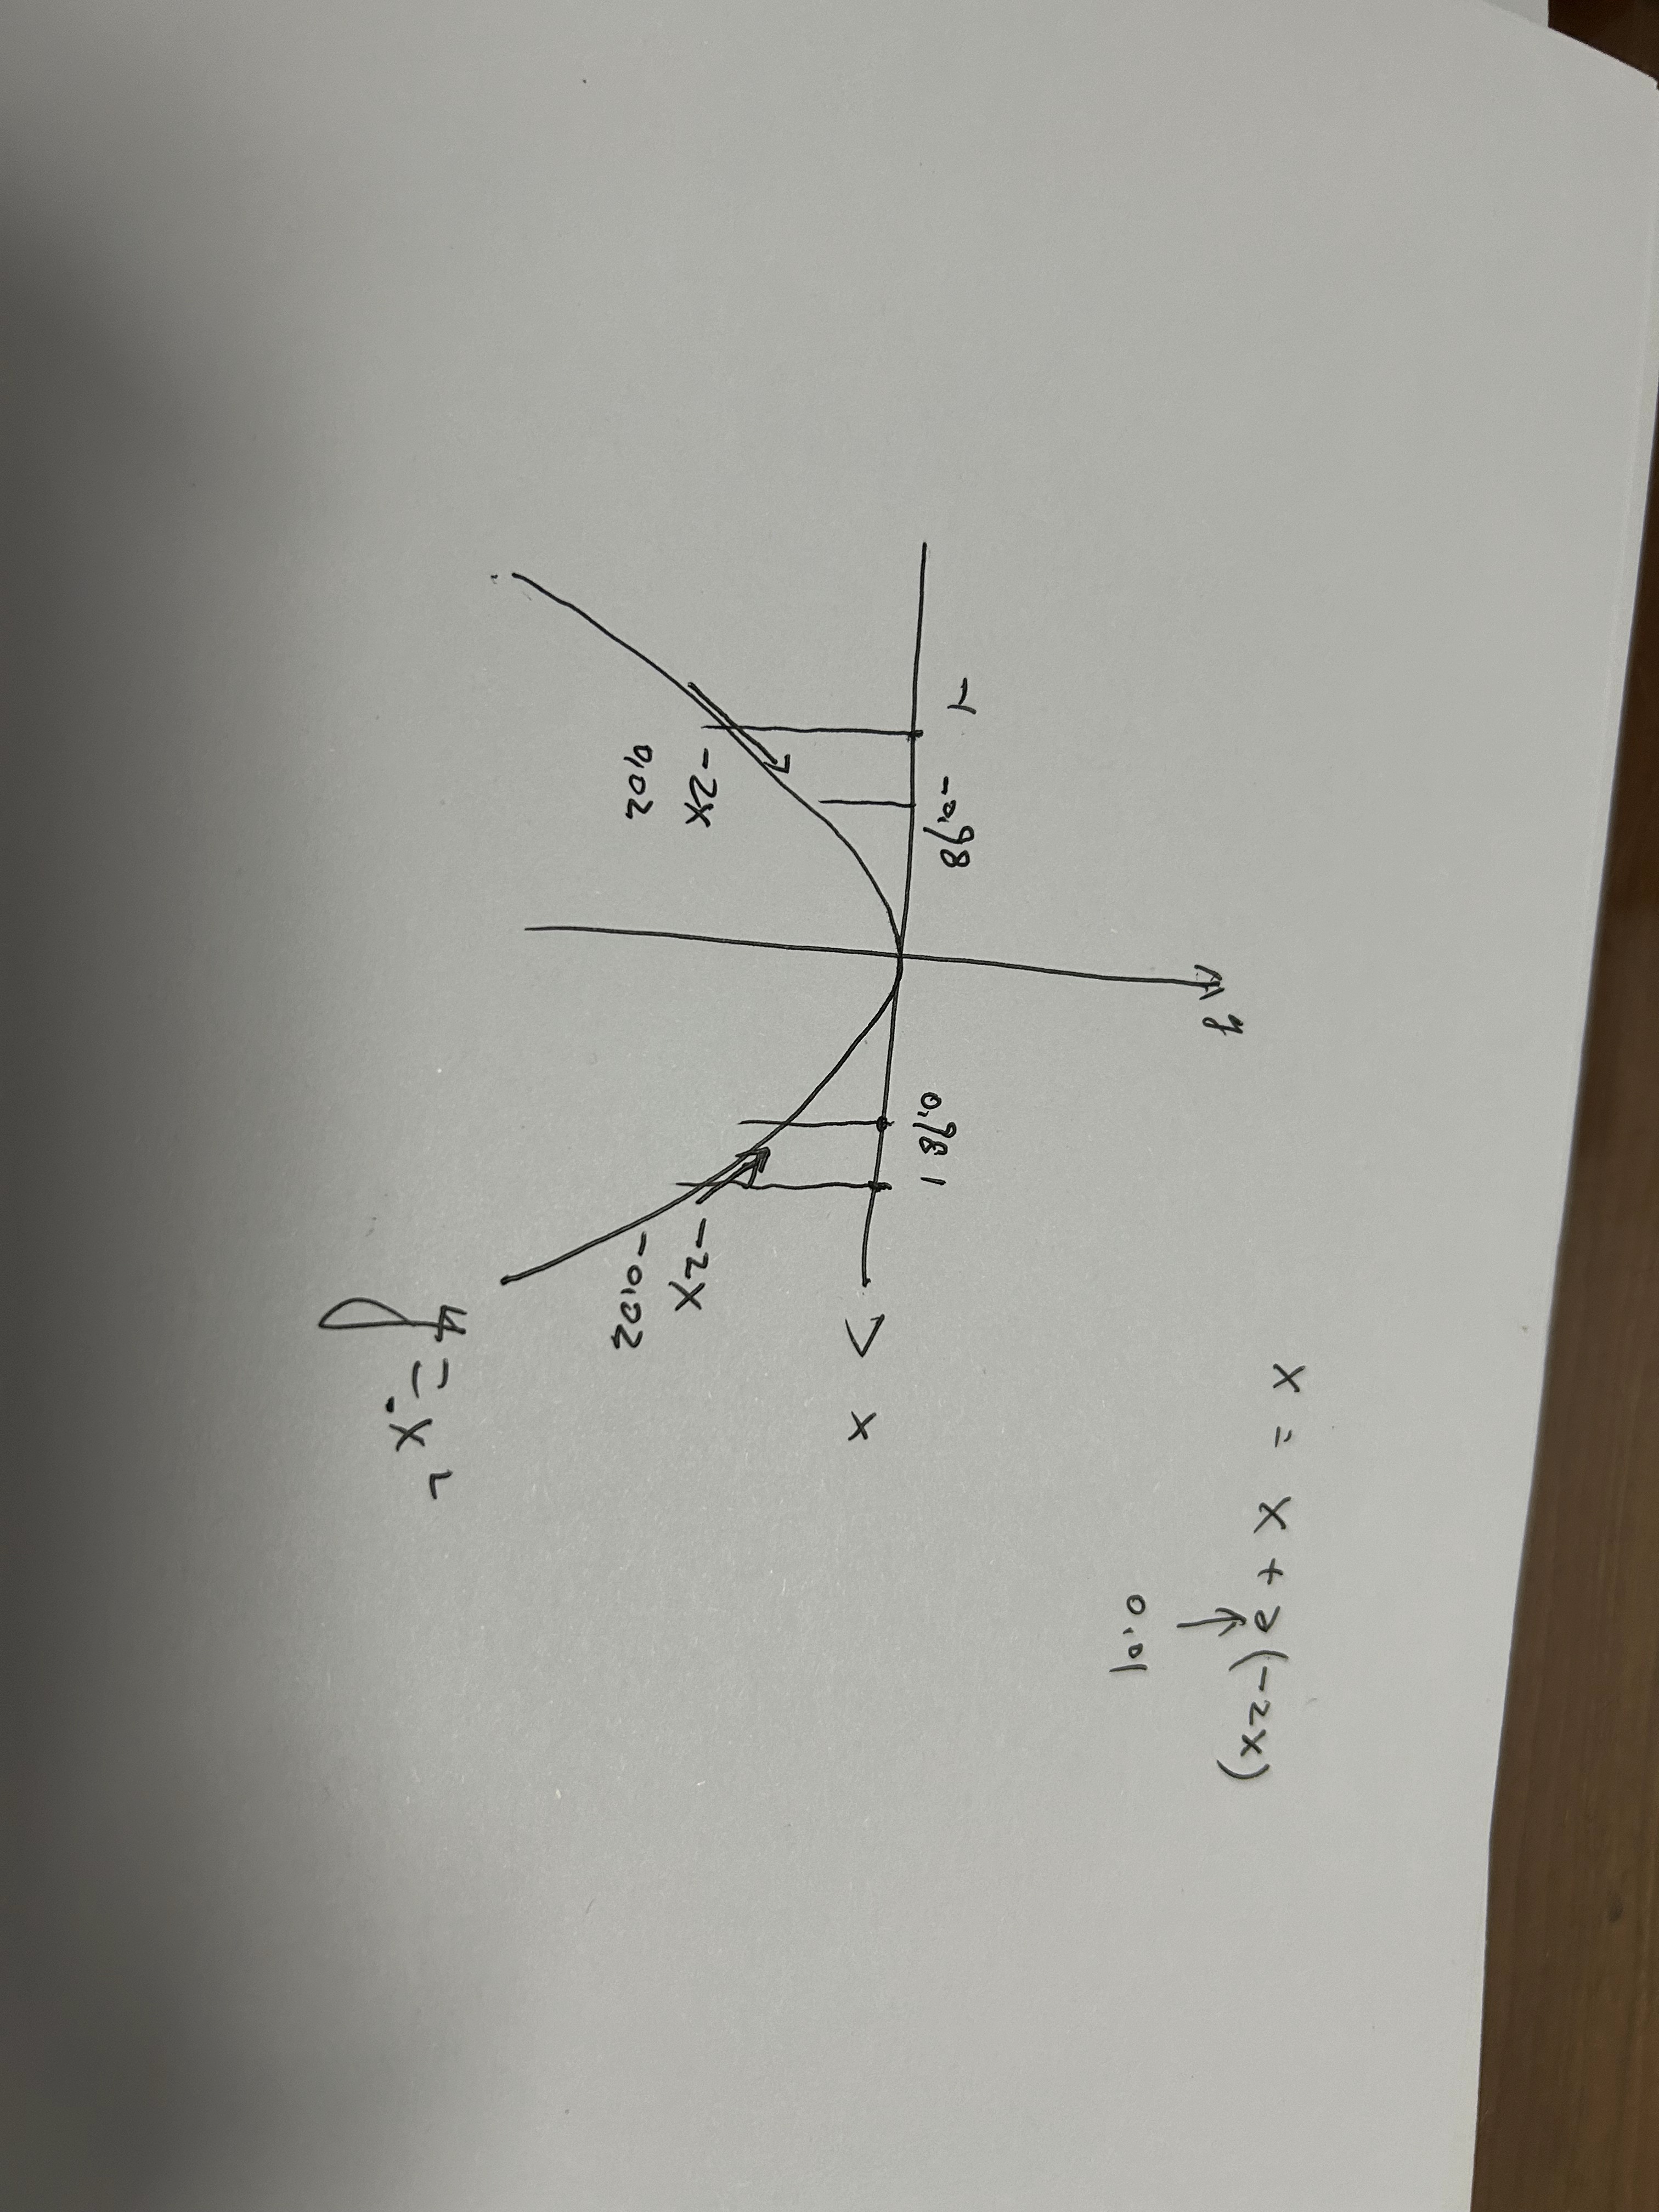 x = x + a(-2x)
↑
0.01
y
-1
-0.98
0.98
1
x
-2x
0.02
-2x
-0.02
y = -x²